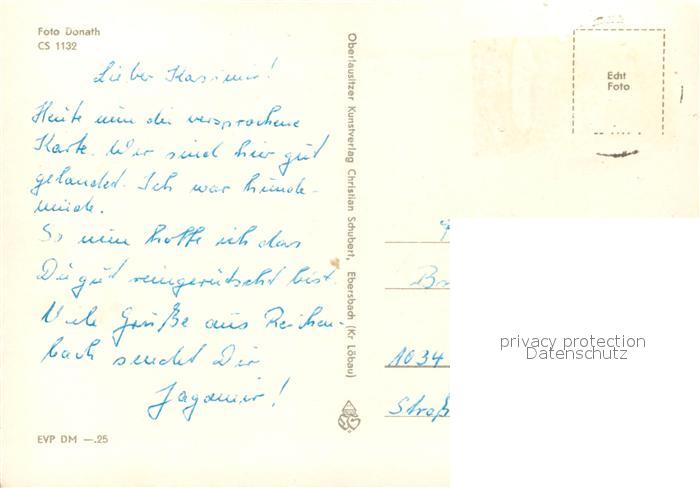 Foto Donath
CS 1132
Lieber Kasimir!
Heute nun die versprochene
Karte. Wir sind hier gut
gelandet. Ich war hunde-
müde.
So nun hoffe ich das
Du gut reingerutscht bist.
Viele Grüße aus Reichen-
bach sendet Dir
EVP DM —.25
Oberlausitzer Kunstverlag Christian Schubert, Ebersbach (Kr Löbau)
Echt
Foto
1034
Straß
privacy protection
Datenschutz